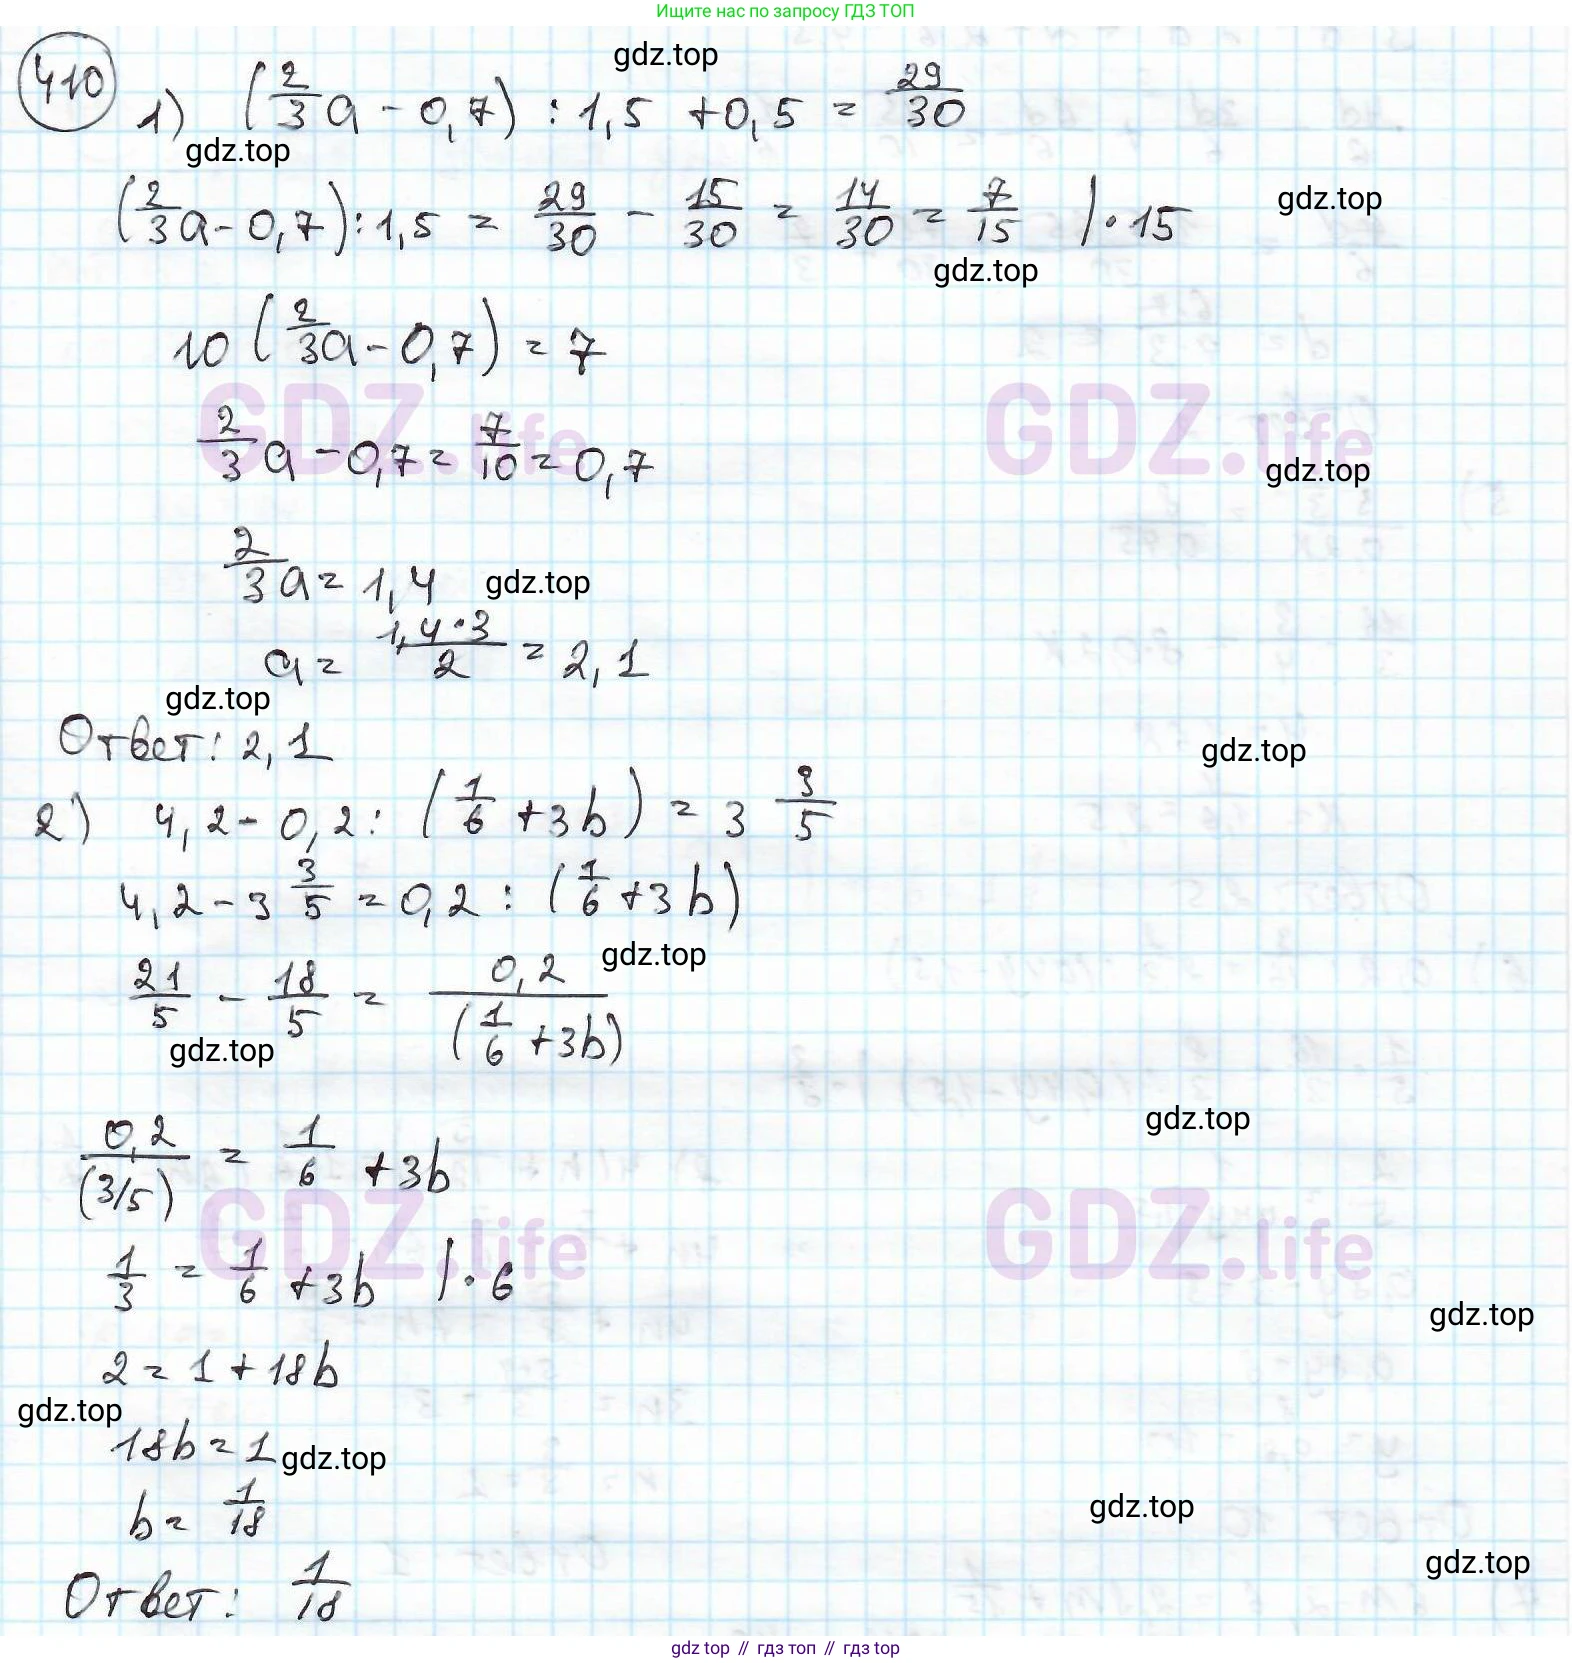 Ищите нас по запросу ГДЗ ТОП
gdz.top
410
1) (2/3 a - 0,7) : 1,5 + 0,5 = 29/30
gdz.top
(2/3 a - 0,7) : 1,5 = 29/30 - 15/30 = 14/30 = 7/15 | · 15
gdz.top
gdz.top
10 (2/3 a - 0,7) = 7
GDZ.life
GDZ.life
2/3 a - 0,7 = 7/10 = 0,7
gdz.top
2/3 a = 1,4
gdz.top
a = 1,4 · 3/2 = 2,1
gdz.top
Ответ: 2,1
gdz.top
2) 4,2 - 0,2 : (1/6 + 3b) = 3 3/5
4,2 - 3 3/5 = 0,2 : (1/6 + 3b)
gdz.top
21/5 - 18/5 = 0,2/(1/6 + 3b)
gdz.top
gdz.top
0,2/(3/5) = 1/6 + 3b
GDZ.life
GDZ.life
1/3 = 1/6 + 3b | · 6
gdz.top
2 = 1 + 18b
gdz.top
18b = 1
gdz.top
b = 1/18
gdz.top
gdz.top
Ответ: 1/18
gdz top // гдз топ // гдз top